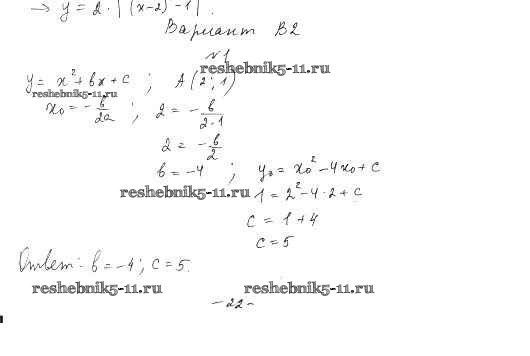 → y = 2 · |(x-2)² - 1|.
Вариант В2
№1
reshebnik5-11.ru
y = x² + bx + c ; A (2; 1)
reshebnik5-11.ru
x₀ = - b/2a ; 2 = - b/2·1
2 = - b/2
b = -4 ; y₀ = x₀² - 4x₀ + c
reshebnik5-11.ru
1 = 2² - 4·2 + c
c = 1 + 4
c = 5
Ответ: b = -4; c = 5.
reshebnik5-11.ru reshebnik5-11.ru
- 22 -